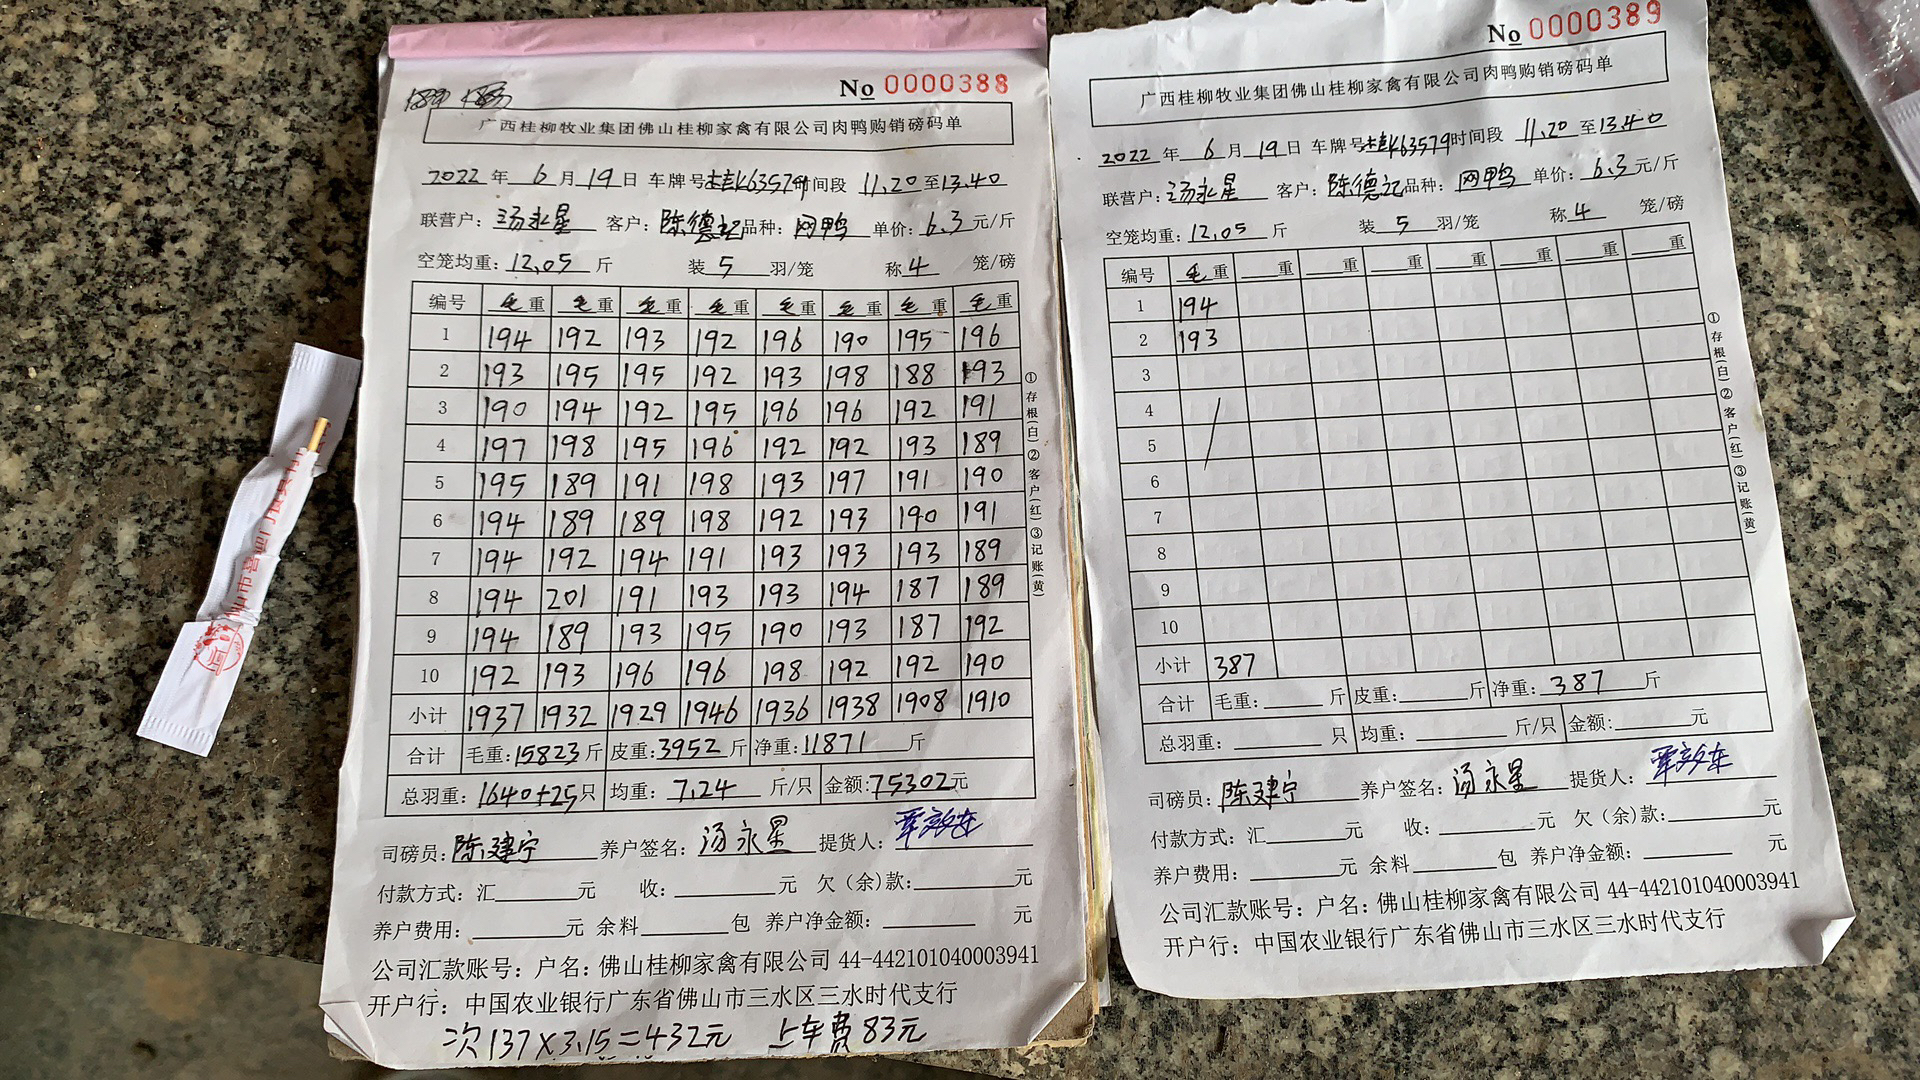 No 0000388
广西桂柳牧业集团佛山桂柳家禽有限公司肉鸭购销磅码单
2022 年 6 月 19 日 车牌号 桂K63579 时间段 11.20 至 13.40
联营户: 汤永星 客户: 陈德记 品种: 网鸭 单价: 6.3 元/斤
空笼均重: 12.05 斤 装 5 羽/笼 称 4 笼/磅
编号 毛重 毛重 毛重 毛重 毛重 毛重 毛重 毛重
1 194 192 193 192 196 190 195 196
2 193 195 195 192 193 198 188 193
3 190 194 192 195 196 196 192 191
4 197 198 195 196 192 192 193 189
5 195 189 191 198 193 197 191 190
6 194 189 189 198 192 193 190 191
7 194 192 194 191 193 193 193 189
8 194 201 191 193 193 194 187 189
9 194 189 193 195 190 193 187 192
10 192 193 196 196 198 192 192 190
小计 1937 1932 1929 1946 1936 1938 1908 1910
合计 毛重: 15823 斤 皮重: 3952 斤 净重: 11871 斤
总羽重: 1640+25 只 均重: 7.24 斤/只 金额: 75302 元
司磅员: 陈建宁 养户签名: 汤永星 提货人:
付款方式: 汇 元 收: 元 欠(余)款: 元
养户费用: 元 余料 包 养户净金额: 元
公司汇款账号: 户名: 佛山桂柳家禽有限公司 44-442101040003941
开户行: 中国农业银行广东省佛山市三水区三水时代支行
次137×3.15=432元 上车费83元
①存根(白)②客户(红)③记账(黄)
No 0000389
广西桂柳牧业集团佛山桂柳家禽有限公司肉鸭购销磅码单
2022 年 6 月 19 日 车牌号 桂K63579 时间段 11.20 至 13.40
联营户: 汤永星 客户: 陈德记 品种: 网鸭 单价: 6.3 元/斤
空笼均重: 12.05 斤 装 5 羽/笼 称 4 笼/磅
编号 毛重 重 重 重 重 重 重 重
1 194
2 193
3
4
5
6
7
8
9
10
小计 387
合计 毛重: 斤 皮重: 斤 净重: 387 斤
总羽重: 只 均重: 斤/只 金额: 元
司磅员: 陈建宁 养户签名: 汤永星 提货人:
付款方式: 汇 元 收: 元 欠(余)款: 元
养户费用: 元 余料 包 养户净金额: 元
公司汇款账号: 户名: 佛山桂柳家禽有限公司 44-442101040003941
开户行: 中国农业银行广东省佛山市三水区三水时代支行
①存根(白)②客户(红)③记账(黄)